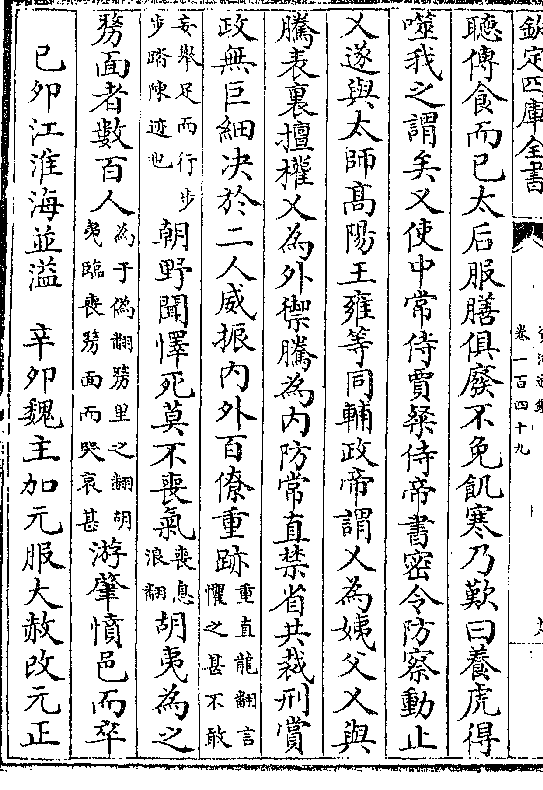 欽定四庫全書
卷一百四十九
聽傳食而已太后服膳俱廢不免飢寒乃歎曰養虎得
噬我之謂矣又使中常侍賈粲侍帝書密令防察動止
乂遂與太師髙陽王雍等同輔政帝謂乂為姨父乂與
騰表裏擅權乂為外禦騰為内防常直禁省共裁刑賞
政無巨細决於二人威振内外百僚重跡重直龍翻言懼之甚不敢
妄舉足而行步步踏陳迹也朝野聞懌死莫不喪氣喪息浪翻胡夷為之
剺面者數百人為于偽翻剺里之翻胡夷臨喪剺面而哭哀甚游肇憤邑而卒
己夘江淮海並溢　辛夘魏主加元服大赦改元正